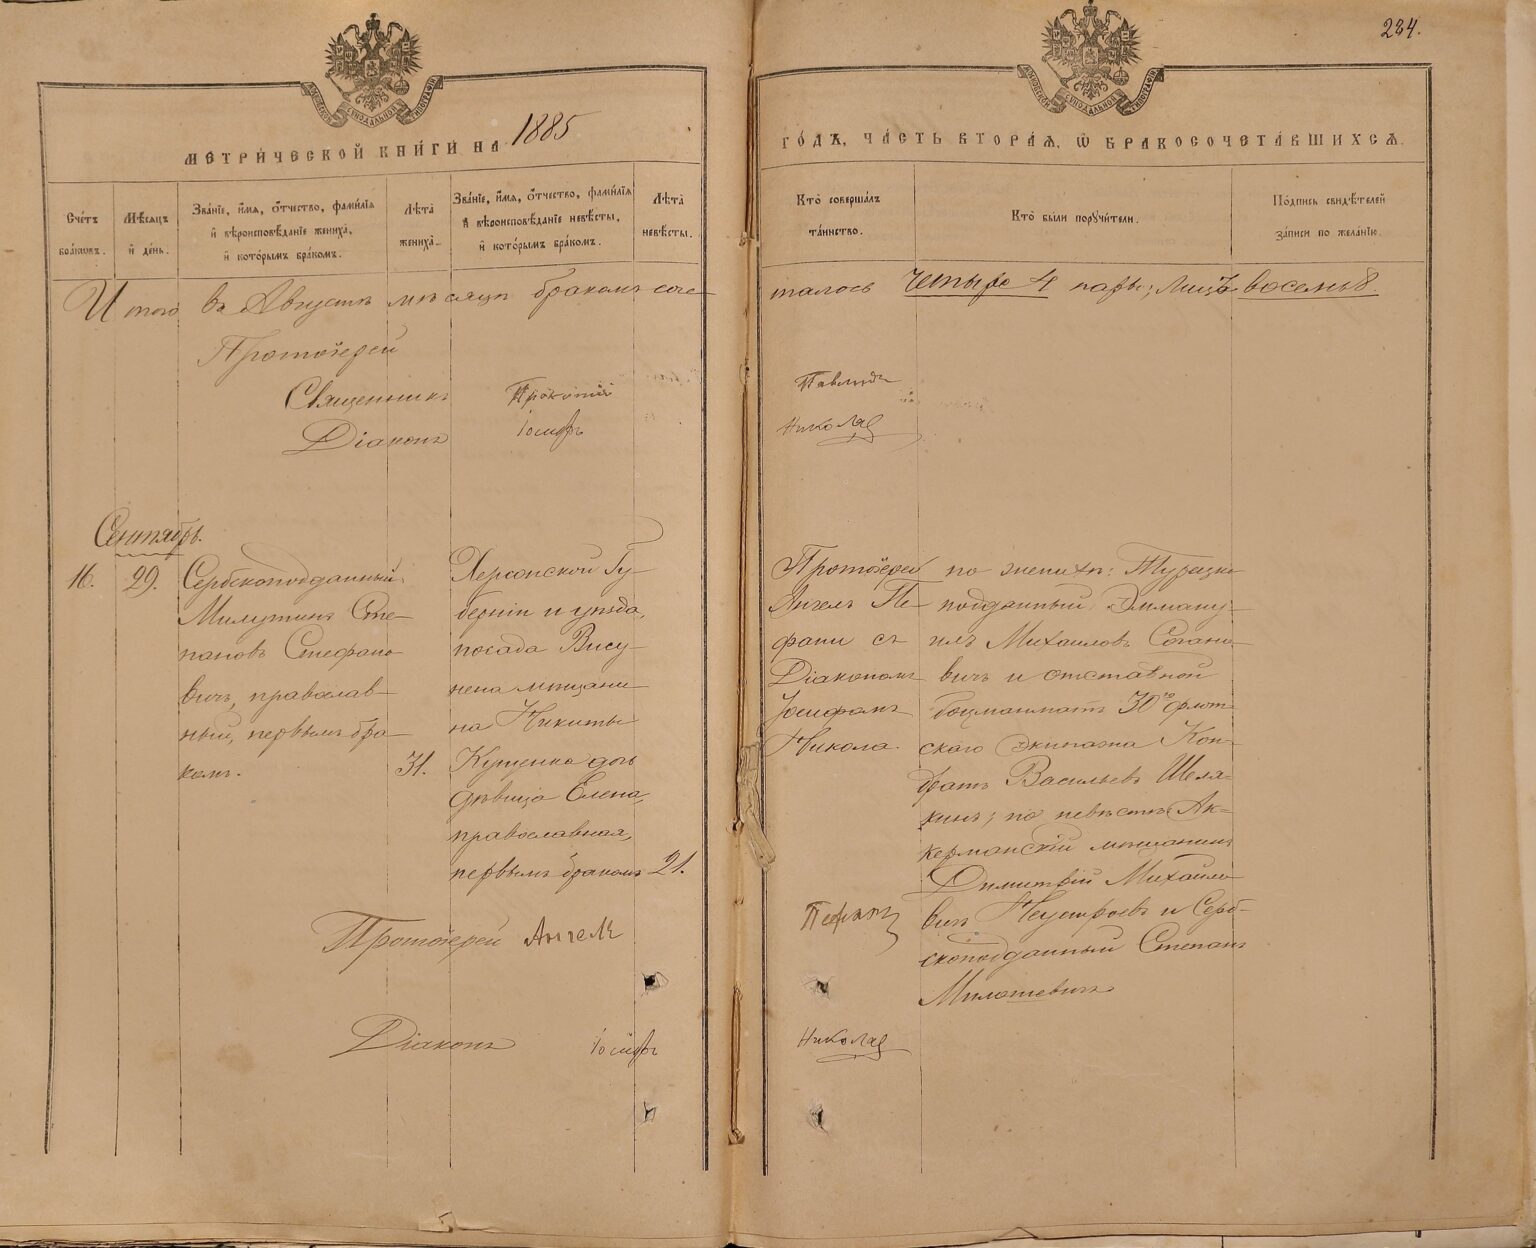 234.
МОСКОВСКОЙ СѴНОДАЛЬНОЙ ТИПОГРАФІИ
МОСКОВСКОЙ СѴНОДАЛЬНОЙ ТИПОГРАФІИ
МЕТРИ́ЧЕСКОЙ КНИ́ГИ НА 1885
ГО́ДЪ, ЧА́СТЬ ВТОРА́Я, Ѽ БРАКОСОЧЕТА́ВШИХСЯ.
Сче́тъ бра́ковъ.
Мѣ́сяцъ и҆ де́нь.
Зва́нїе, и҆́мя, ѻ҆́тчество, фами́лїя
и҆ вѣроисповѣ́данїе жениха̀,
и҆ кото́рымъ бра́комъ.
Лѣ́та жениха̀.
Зва́нїе, и҆́мя, ѻ҆́тчество, фами́лїя
и҆ вѣроисповѣ́данїе невѣ́сты,
и҆ кото́рымъ бра́комъ.
Лѣ́та невѣ́сты.
Кто̀ соверша́лъ
та́инство.
Кто̀ бы́ли поручи́тели.
По́дпись свидѣ́телей
за́писи по жела́нїю.
Итого въ Августѣ мѣсяцѣ бракомъ соче
талось четыре 4 пары; лицъ восемь 8.
Протоіерей
Священникъ Прокопій
Діаконъ Іосифъ
Николая
Сентябрь.
16. 29.
Сербскоподданный
Милутинъ Сте-
пановъ Стефано
вичъ, православ-
ный, первымъ бра-
комъ.
31.
Херсонской Гу-
берніи и уѣзда,
посада Вису-
нска мѣщани-
на Никиты
Куценко дочь
дѣвица Елена,
православная,
первымъ бракомъ
21.
Протоіерей
Ангелъ Пе-
фани съ
Діакономъ
Іосифомъ
Никола.
по женихѣ: Турецко
подданный Эмману-
илъ Михаиловъ
вичъ и отставной
боцманматъ 30го флот-
скаго экипажа Кон-
дратъ Васильевъ Шеля-
кинъ; по невѣстѣ: Ак-
керманскій мѣщанинъ
Димитрій Михайло
вичъ и Серб-
скоподданный Степанъ
Милошевичъ
Протоіерей Ангелъ
Пефани
Діаконъ Іосифъ
Николая